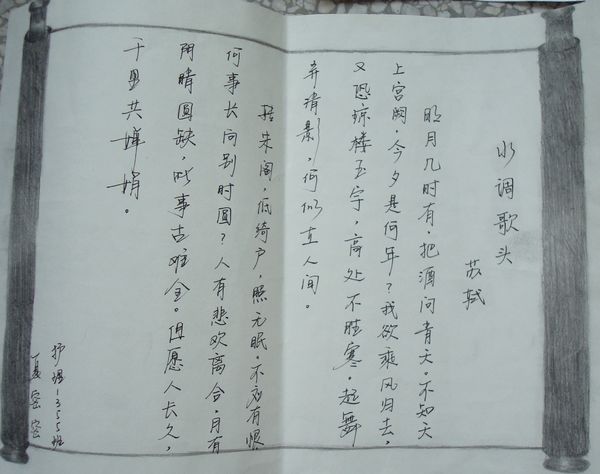 水调歌头
苏轼
明月几时有，把酒问青天。不知天
上宫阙，今夕是何年？我欲乘风归去，
又恐琼楼玉宇，高处不胜寒。起舞
弄清影，何似在人间。
转朱阁，低绮户，照无眠。不应有恨，
何事长向别时圆？人有悲欢离合，月有
阴晴圆缺，此事古难全。但愿人长久，
千里共婵娟。
护理1355班
夏密密